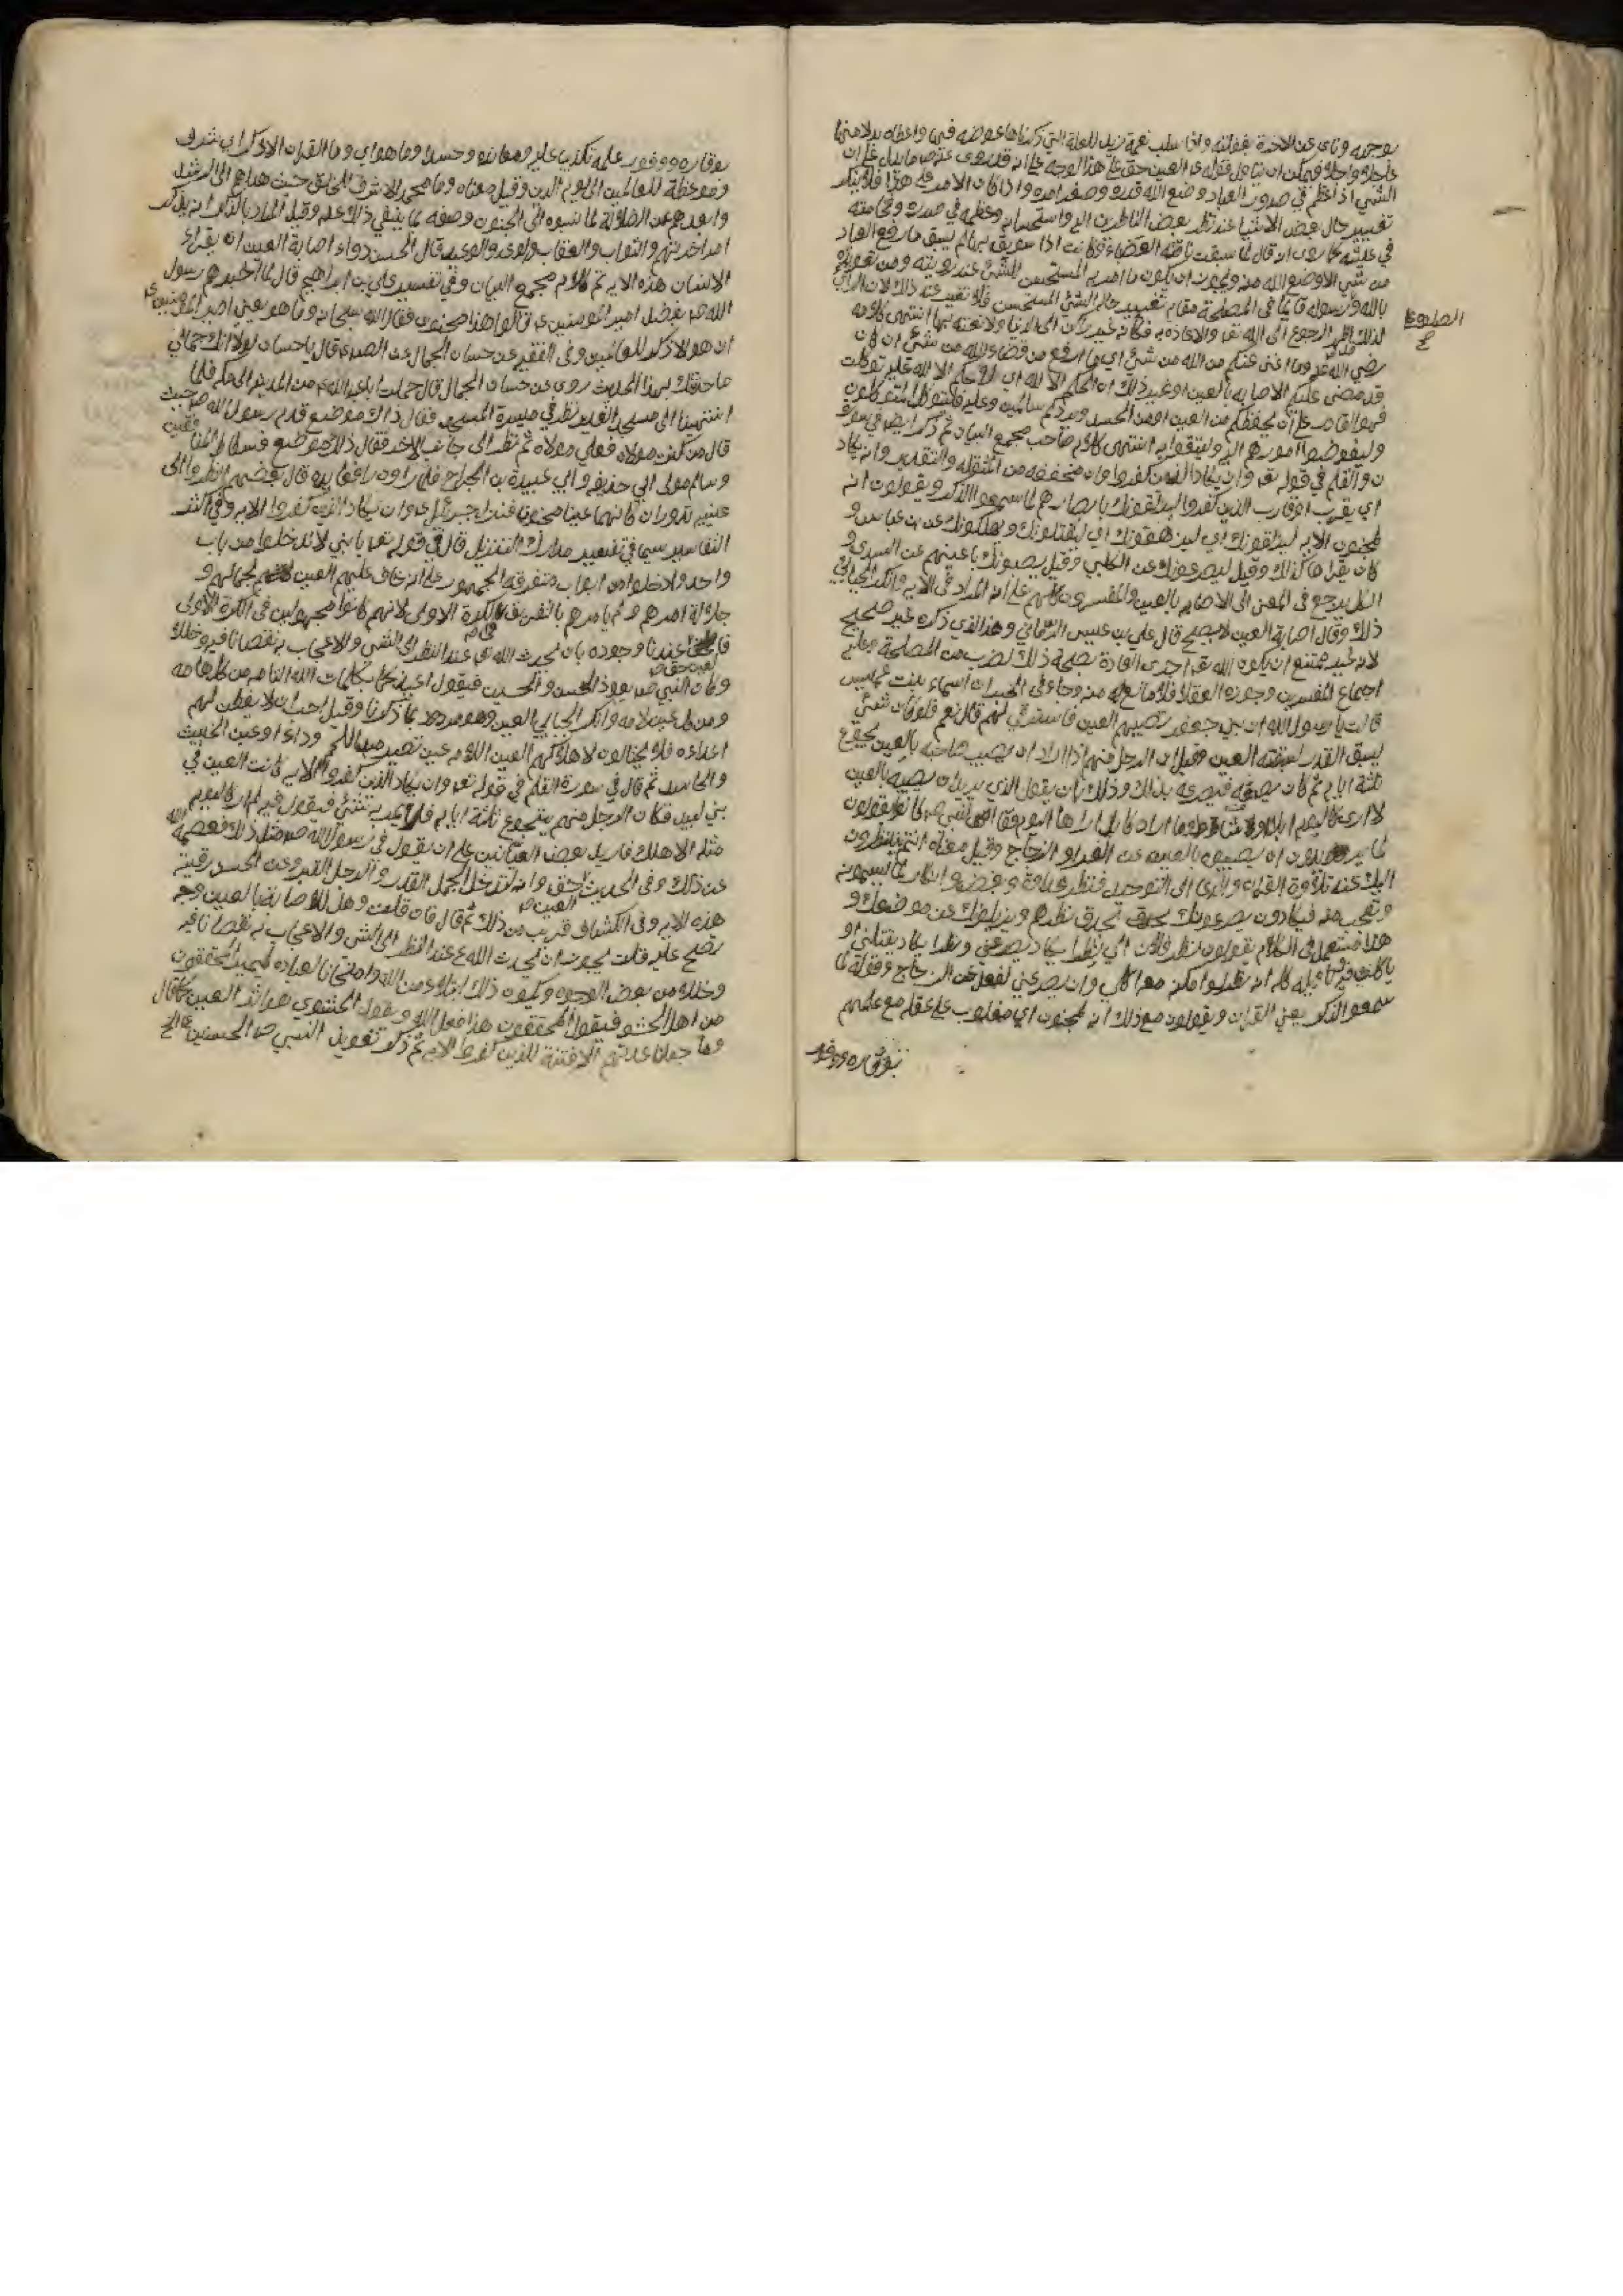 بوجهه ونأى عن الاخرة بغفلته واذا سلب نعمة زيد للعلة التي ذكرناها عوضه فيها واعطاه بدلا منها
عاجلا واجلا فيمكن ان يتاول قوله ع العين حق على هذا الوجه على انه قد روى عنه ص ما يدل على ان
الشئ اذا عظم في صدور العباد وضع الله قدره وصغر امره واذا كان الامر على هذا فلا ينكر
تغيير حال بعض الاشياء عند نظر بعض الناظرين اليه واستحسانه وعظمه في صدره وفخامته
في عينه كما روى انه قال لما سبقت ناقته العضباء وكانت اذا سوبق بها لم يسبق ما رفع العباد
من شئ الا وضع الله منه ويجوز ان يكون ما امر به المستحسن للشئ عند رويته ومن تعويذه
بالله ورسوله قائما في المصلحة مقام تغيير حال الشئ المستحسن فلا تغيير عند ذلك لان الرائي
لذلك اظهر الرجوع الى الله تع والاعاذه به فكانه غير راكن الى الدنيا ولا مغتر بها انتهى كلامه
رضي الله عنه وما اغنى عنكم من الله من شئ اي ما ادفع من قضاء الله من شئ ان كان
قد قضى عليكم الاصابه بالعين او غير ذلك ان الحكم الا لله اي لا حكم الا لله عليه توكلت
فهو القادر على ان يحفظكم من العين او من الحسد ويردكم سالمين وعليه فليتوكل المتوكلون
وليفوضوا امورهم اليه وليثقوا به انتهى كلام صاحب مجمع البيان ثم ذكر ايضا في سورة
ن والقلم في قوله تع وان يكاد الذين كفروا وان مخففه من المثقله والتقدير وانه يكاد
اي يقرب او قارب الذين كفروا ليزلقونك بابصارهم لما سمعوا الذكر ويقولون انه
لمجنون الايه ليزلقونك اي ليزهقونك اي ليقتلونك ويهلكونك عن ابن عباس و
كان يقراها كذلك وقيل ليصرعونك عن الكلبي وقيل يصيبونك باعينهم عن السدي و
الكل يرجع في المعنى الى الاصابه بالعين والمفسرون كلهم على انه المراد في الايه وانكر الجبائي
ذلك وقال اصابة العين لا يصح قال علي بن عيسى الرماني وهذا الذي ذكره غير صحيح
لانه غير ممتنع ان يكون الله تع اجرى العادة بصحة ذلك لضرب من المصلحة وعليه
اجماع المفسرين وجوزه العقلا فلا مانع له منه وجاء في الخبر ان اسماء بنت عميس
قالت يا رسول الله ان بني جعفر تصيبهم العين فاسترقي لهم قال نعم فلو كان شئ
يسبق القدر لسبقته العين وقيل ان الرجل منهم اذا اراد ان يصيب صاحبه بالعين تجوع
ثلثة ايام ثم كان يصفه فيصرعه بذلك وذلك بان يقول الذي يريد ان يصيبه بالعين
لا ارى كاليوم ابلا ولا شاء او ما اراد كابل اراها اليوم فقالوا للنبي ص كما كانوا يقولون
لما يريدون ان يصيبوه بالعين عن الفراء و الزجاج وقيل معناه انهم ينظرون
اليك عند تلاوة القران والدعاء الى التوحيد نظر عداوة وبغض وانكار لما يسمعونه
وتعجب منه فيكادون يصرعونك بحدة نظرهم ويزيلونك عن موضعك و
هذا مستعمل في الكلام يقولون نظر فلان الي نظرا يكاد يصرعني ونظرا يكاد يقتلني او
ياكلني فيه وتاويله كله انه نظر لو امكنه معه اكلي وان يصرعني لفعل عن الزجاج وقوله لما
سمعوا الذكر يعني القران ويقولون مع ذلك انه لمجنون اي مغلوب على عقله مع علمهم
بوقاره ووفور
بوقاره ووفور عقله تكذيبا عليه ومعانده وحسدا وما هو اي وما القران الا ذكر اي شرف
وموعظة للعالمين الى يوم الدين وقيل معناه وما محمد الا شرف للخلق حيث هداهم الى الرشد
وابعدهم عن الضلالة لما نسبوه الى الجنون وصفه بما ينفي ذلك عنه وقيل المراد بالذكر انه يذكر
امر اخرتهم والثواب والعقاب والوعد والوعيد قال الحسن دواء اصابة العين ان يقراء
الانسان هذه الايه تم كلام مجمع البيان وفي تفسير علي بن ابراهيم قال لما اخبرهم رسول
الله ص بفضل امير المومنين ع قالوا هذا مجنون فقال الله سبحانه وما هو يعني امير المومنين ع
ان هو الا ذكر للعالمين وفي الفقيه عن حسان الجمال عن الصادق قال يا حسان لولا انك جمالي
ما حدثتك بهذا الحديث روى عن حسان الجمال قال حملت ابا عبد الله ع من المدينه الى مكه فلما
انتهينا الى مسجد الغدير نظر في ميسرة المسجد فقال ذاك موضع قدم رسول الله ص حيث
قال من كنت مولاه فعلي مولاه ثم نظر الى جانب الاخر فقال ذلك موضع فسطاط المنافقين
وسالم مولى ابي حذيفه وابي عبيدة بن الجراح فلما راوه رافعا يده قال بعضهم انظروا الى
عينيه تدوران كانهما عينا مجنون فنزل جبرئيل ع وان يكاد الذين كفروا الايه وفي اكثر
التفاسير سيما في تفسير مدارك التنزيل قال في قوله تع يا بني لا تدخلوا من باب
واحد وادخلوا من ابواب متفرقه الجمهور على انه خاف عليهم العين لجمالهم و
جلالة امرهم ولم يامرهم بالتفريق في الكرة الاولى لانهم كانوا مجهولين في الكرة الاولى
فالعين حق عندنا وجوده بان يحدث الله تع عند النظر الى الشئ والاعجاب به نقصانا فيه وخللا
وكان النبي ص يعوذ الحسن والحسين فيقول اعيذكما بكلمات الله التامه من كل هامه
ومن كل عين لامه وانكر الجبائي العين وهو مردود بما ذكرنا وقيل احب ان لا يفطن لهم
اعداءه فلا يحتالون لاهلاكهم
والحاسد ثم قال في سورة القلم في قوله تع وان يكاد الذين كفروا الايه كانت العين في
بني اسد فكان الرجل منهم يتجوع ثلثة ايام فلا يمر به شئ فيقول فيه لم ار كاليوم
مثله الا هلك فاريد بعض العيانين على ان يقول في رسول الله ص مثل ذلك فعصمه الله
عن ذلك وفي الحديث العين حق وانه لتدخل الجمل القدر و الرجل القبر وعن الحسن رقية
العين ص
هذه الايه وفي الكشاف قريب من ذلك ثم قال فان قلت وهل للاصابة بالعين وجه
تصح عليه قلت يجوز ان يحدث الله ع عند النظر الى الشئ والاعجاب به نقصانا فيه
وخللا من بعض الوجوه ويكون ذلك ابتلاء من الله وامتحانا لعباده ليميز المحققون
من اهل الحشو فيقول المحققون هذا فعل الله ويقول الحشوي هو اثر العين كما قال
وما جعلنا عدتهم الا فتنة للذين كفروا الايه ثم ذكر تعويذ النبي ص الحسنين ع الخ